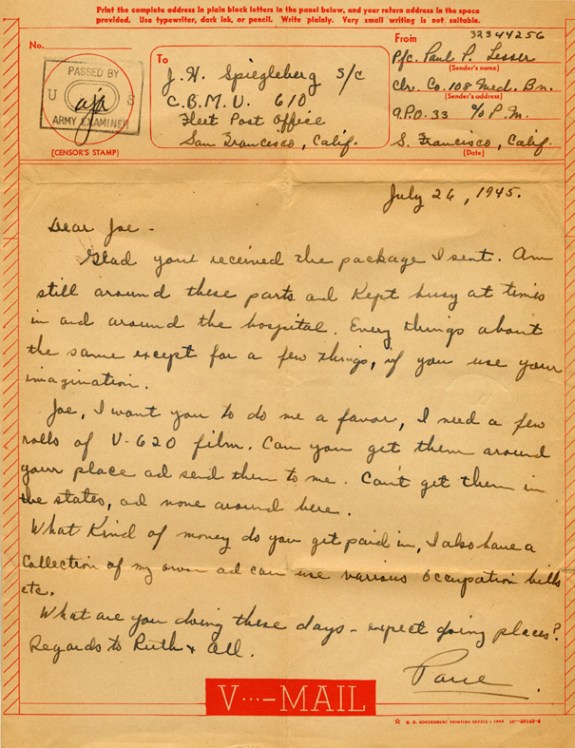 Print the complete address in plain block letters in the panel below, and your return address in the space
provided. Use typewriter, dark ink, or pencil. Write plainly. Very small writing is not suitable.
No.
PASSED BY
U S
ARMY EXAMINER
(CENSOR'S STAMP)
To
J. H. Spiegleberg S/C
C.B.M.U. 610
Fleet Post Office
San Francisco, Calif.
From
32344256
Pfc. Paul P. Lesser
(Sender's name)
Clr. Co. 108 Med. Bn.
(Sender's address)
A.P.O. 33 % P.M.
S. Francisco, Calif.
(Date)
July 26, 1945.
Dear Joe -
Glad you received the package I sent. Am
still around these parts ad kept busy at times
in and around the hospital. Every things about
the same except for a few things, if you use your
imagination.
Joe, I want you to do me a favor, I need a few
rolls of V-620 film. Can you get them around
your place ad send them to me. Can't get them in
the states, ad none around here.
What kind of money do you get paid in, I also have a
collection of my own ad can use various occupation bills
etc.
What are you doing these days - expect going places?
Regards to Ruth & all.
V···-MAIL
U. S. GOVERNMENT PRINTING OFFICE : 1944